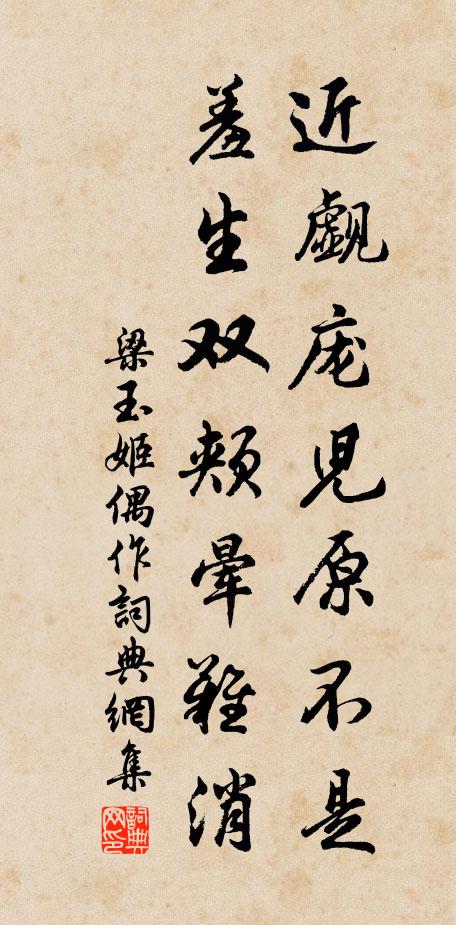 近觑庞児原不是
羞生双颊晕难消
梁玉姬偶作詞典網集
詞典網印